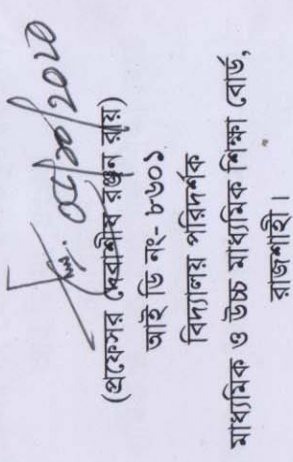 ০৫/১০/২০২০
(প্রফেসর দেবাশীষ রঞ্জন রায়)
আই ডি নং- ৮৬০১
বিদ্যালয় পরিদর্শক
মাধ্যমিক ও উচ্চ মাধ্যমিক শিক্ষা বোর্ড,
রাজশাহী।